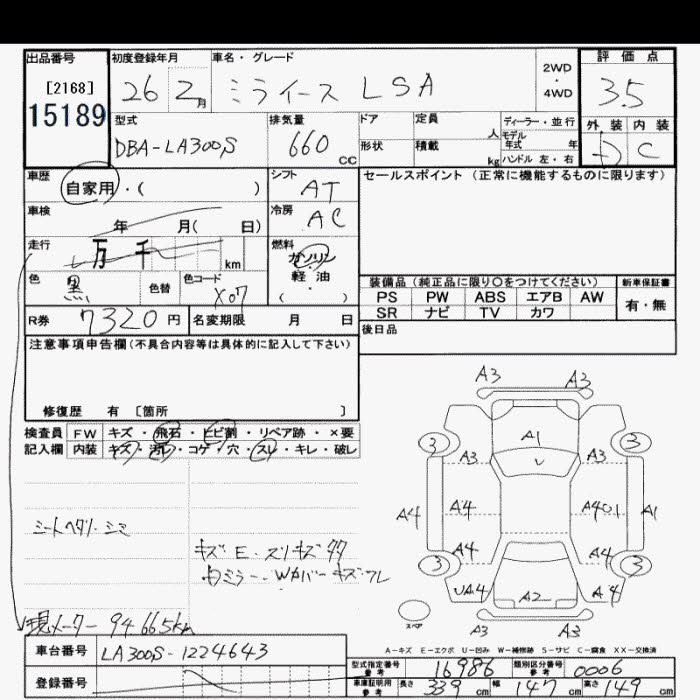 出品番号
[2168]
15189
初度登録年月
26 2 月
車名・グレード
ミライース LSA
2WD
・
4WD
評価点
3.5
型式
DBA-LA300S
排気量
660 CC
ドア
定員
人
ディーラー・並行
モデル
年式 年
形状
積載
kg
ハンドル 左・右
外装 内装
D C
車歴
自家用・( )
シフト
AT
セールスポイント (正常に機能するものに限ります)
車検
年 月( 日)
冷房
AC
走行
万 千 km
燃料
ガソリン
軽油
( )
色
黒
色替
色コード
X07
装備品 (純正品に限り〇をつけてください)
新車保証書
PS PW ABS エアB AW
有・無
SR ナビ TV カワ
R券 7320 円
名変期限 月 日
後日品
注意事項申告欄(不具合内容等は具体的に記入して下さい)
修復歴 有 [箇所 ]
検査員 FW キズ・飛石・ヒビ割・リペア跡・×要
記入欄 内装 キズ・汚レ・コゲ・穴・スレ・キレ・破レ
シートヘタリ・シミ
現メーター 94665km
A3 A3
3 A1 3
A3 A3
A4 A4 A401 A1
A4 A4
3 3
UA4 A2 A4
スペア
A3 A3
A-キズ E-エクボ U-凹み W-補修跡 S-サビ C-腐食 XX-交換済
車台番号 LA300S-1224643
登録番号
型式指定番号
参考
16986
類別区分番号
参考
0006
車庫証明用
参考
長さ 339 cm 幅 147 cm 高さ 149 cm